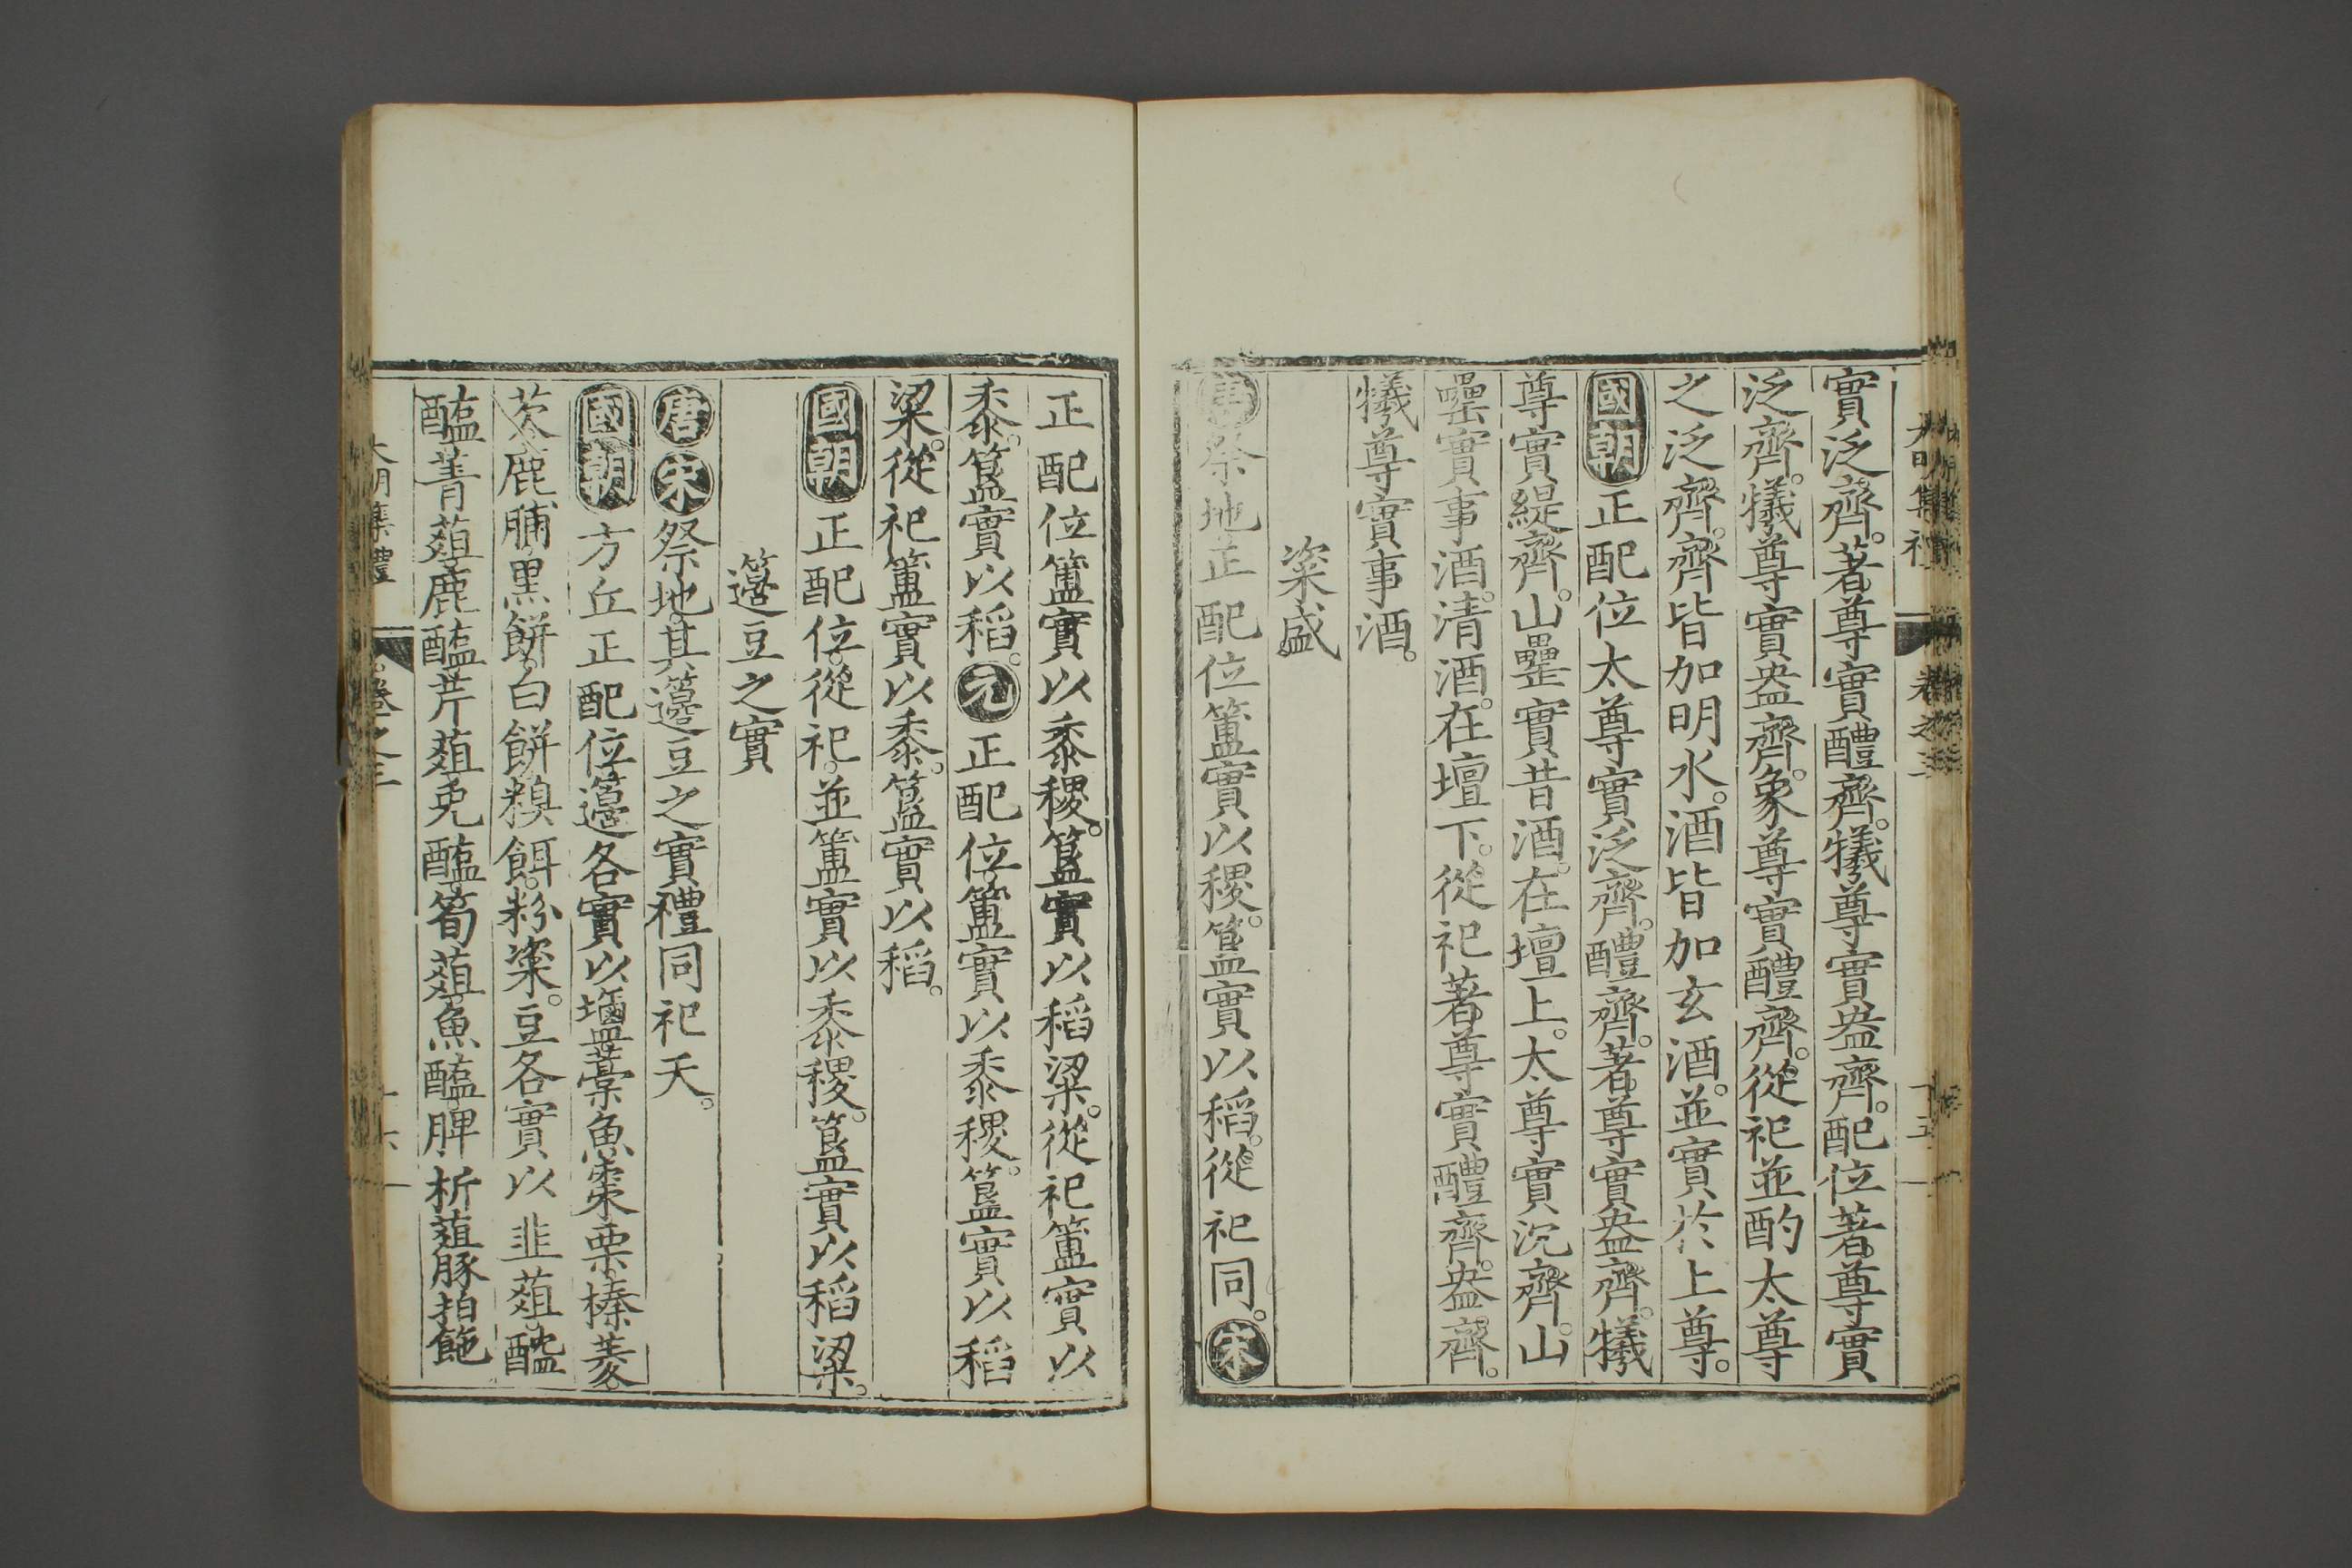 實泛齊。著尊實醴齊。犧尊實盎齊。配位著尊實
泛齊。犧尊實盎齊。象尊實醴齊。從祀並酌太尊
之泛齊。齊皆加明水。酒皆加玄酒。並實於上尊。
國朝正配位太尊實泛齊。醴齊。著尊實盎齊。犧
尊實緹齊。山罍實昔酒。在壇上。太尊實沉齊。山
罍實事酒。清酒。在壇下。從祀著尊實醴齊。盎齊。
犧尊實事酒。
粢盛
唐祭地正配位簠實以稷。簋實以稻。從祀同。宋
正配位簠實以黍稷。簋實以稻粱。從祀簠實以
黍。簋實以稻。元正配位。簠實以黍稷。簋實以稻
粱。從祀簠實以黍。簋實以稻。
國朝正配位。從祀。並簠實以黍稷。簋實以稻粱。
籩豆之實
唐宋祭地。其籩豆之實禮同祀天。
國朝方丘正配位籩各實以塩藁魚棗栗榛菱
芡鹿脯黑餅。白餅糗餌。粉粢。豆各實以韭菹。醓
醢菁菹鹿醢芹菹兎醢筍菹魚醢脾析菹豚拍飽
大明集禮 卷之三 十六